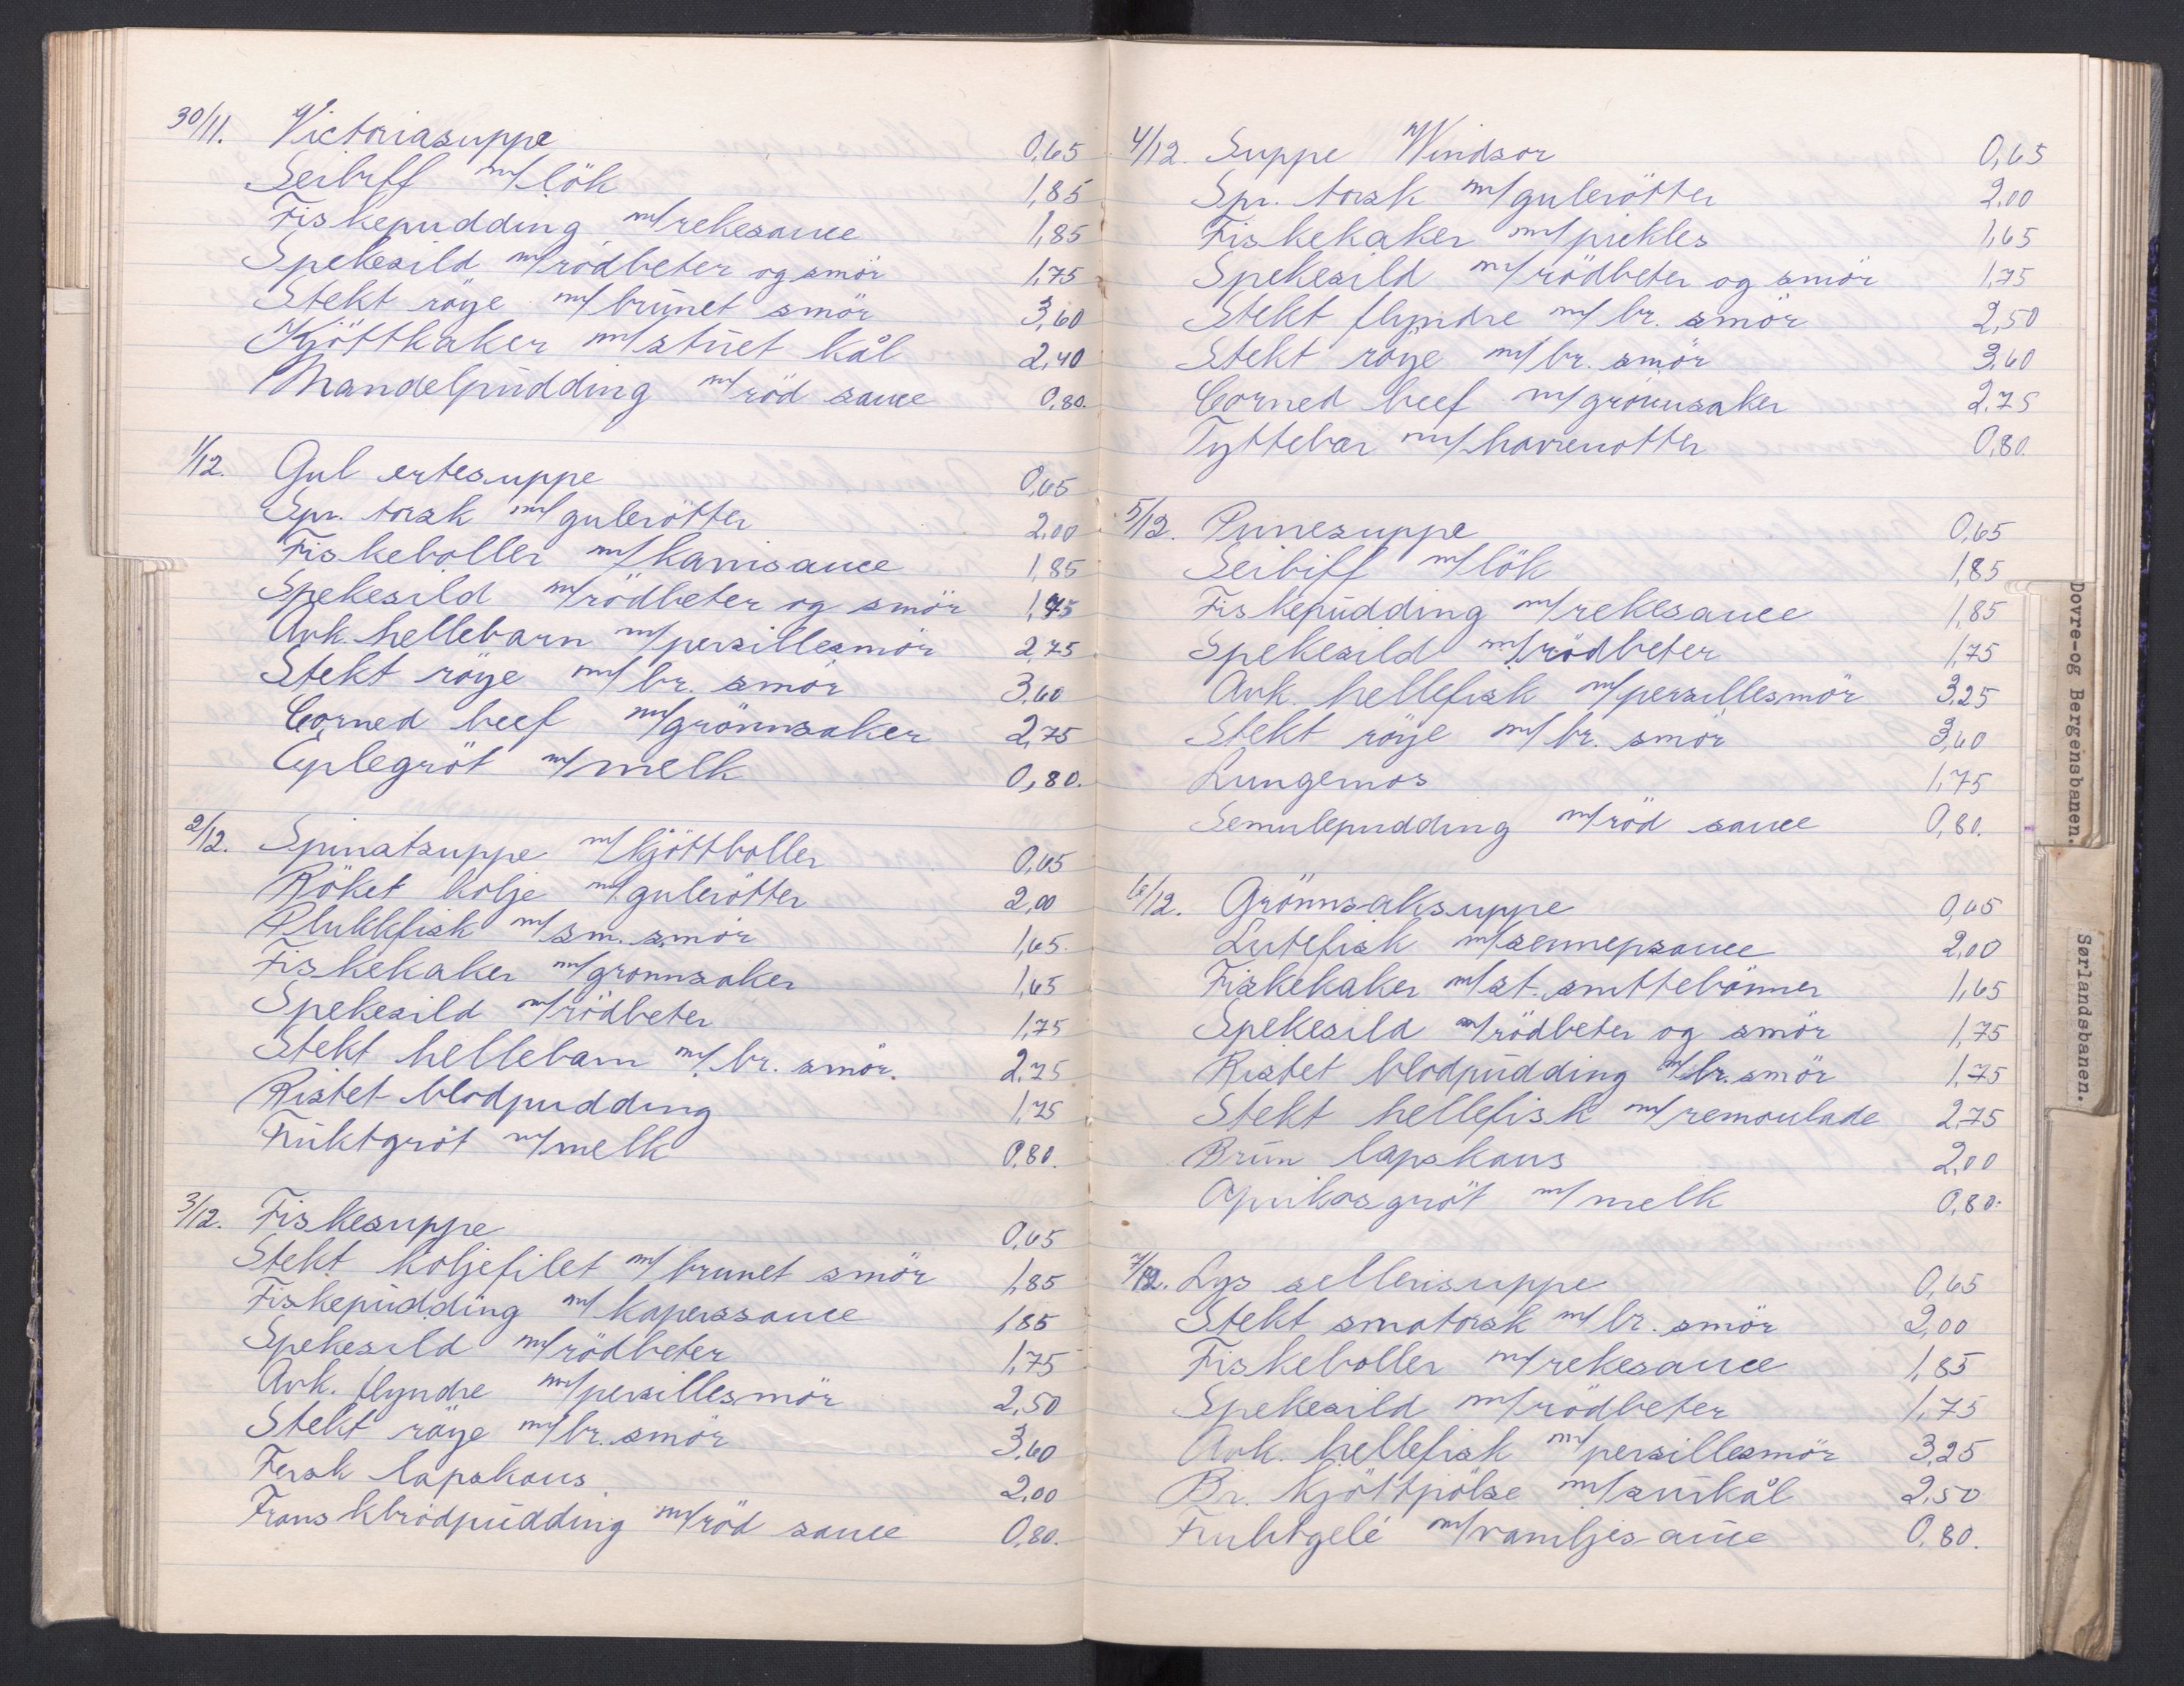 30/11. Victoriasuppe 0,65
Seibiff m/lök 1,85
Fiskepudding m/rekesauce 1,85
Spekesild m/rödbeter og smör 1,75
Stekt röye m/brunet smör 3,60
Kjöttkaker m/stuet kål 2,40
Mandelpudding m/röd sauce 0,80.
1/12. Gul ertesuppe 0,65
Spr. torsk m/gulerötter 2,00
Fiskeboller m/karrisauce 1,85
Spekesild m/rödbeter og smör 1,75
Avk. hellebarn m/persillesmör 2,75
Stekt röye m/br. smör 3,60
Corned beef m/grönnsaker 2,75
Eplegröt m/melk 0,80.
2/12. Spinatsuppe m/kjöttboller 0,65
Röket kolje m/gulerötter 2,00
Plukkfisk m/sm. smör 1,65.
Fiskekaker m/grönnsaker 1,65
Spekesild m/rödbeter 1,75
Stekt hellebarn m/br. smör. 2,75
Ristet blodpudding 1,75
Fruktgröt m/melk 0,80.
3/12. Fiskesuppe 0,65
Stekt koljefilet m/brunet smör 1,85
Fiskepudding m/kaperssauce 1,85
Spekesild m/rödbeter 1,75
Avk. flyndre m/persillesmör 2,50
Stekt röye m/br. smör 3,60
Fersk lapskaus 2,00
Franskbrödpudding m/röd sauce 0,80.
4/12. Suppe Windsor 0,65
Spr. torsk m/gulerötter 2,00
Fiskekaker m/pickles 1,65
Spekesild m/rödbeter og smör 1,75
Stekt flyndre m/br. smör 2,50
Stekt röye m/br. smör 3,60
Corned beef m/grönnsaker 2,75
Tyttebær m/havrenötter 0,80.
5/12. Prinsesuppe 0,65
Seibiff m/lök 1,85
Fiskepudding m/rekesauce 1,85
Spekesild m/rödbeter 1,75
Avk. hellefisk m/persillesmör 3,25
Stekt röye m/br. smör 3,60
Lungemos 1,75
Semulepudding m/röd sauce 0,80.
6/12. Grönnsaksuppe 0,65
Lutefisk m/sennepsauce 2,00
Fiskekaker m/st. snittebönner 1,65
Spekesild m/rödbeter og smör 1,75
Ristet blodpudding m/br. smör 1,75
Stekt hellefisk m/remoulade 2,75
Brun lapskaus 2,00
Aprikosgröt m/melk 0,80.
7/12. Lys sellerisuppe 0,65
Stekt småtorsk m/br. smör 2,00
Fiskeboller m/rekesauce 1,85
Spekesild m/rödbeter 1,75
Avk. hellefisk m/persillesmör 3,25
Br. kjöttpölse m/surkål 2,50
Fruktgelé m/vaniljesauce 0,80.
Dovre-og Bergensbanen.
Sørlandsbanen.